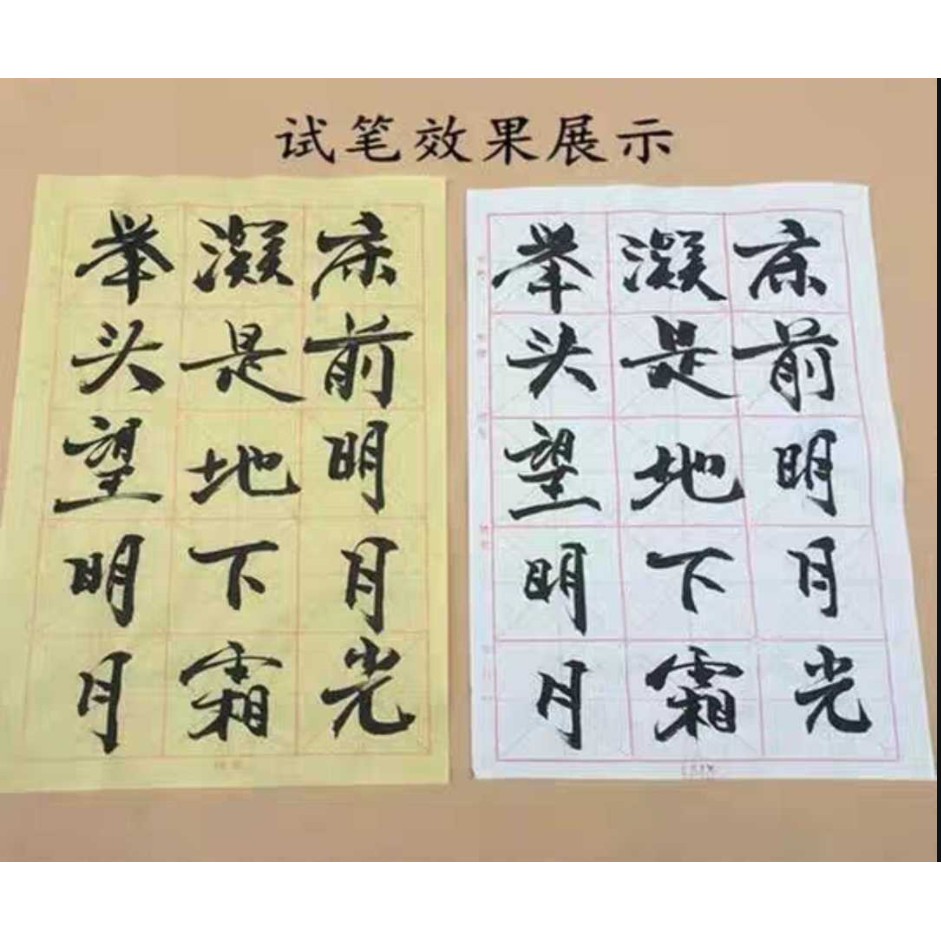 试笔效果展示
床前明月光
凝是地下霜
举头望明月
床前明月光
凝是地下霜
举头望明月